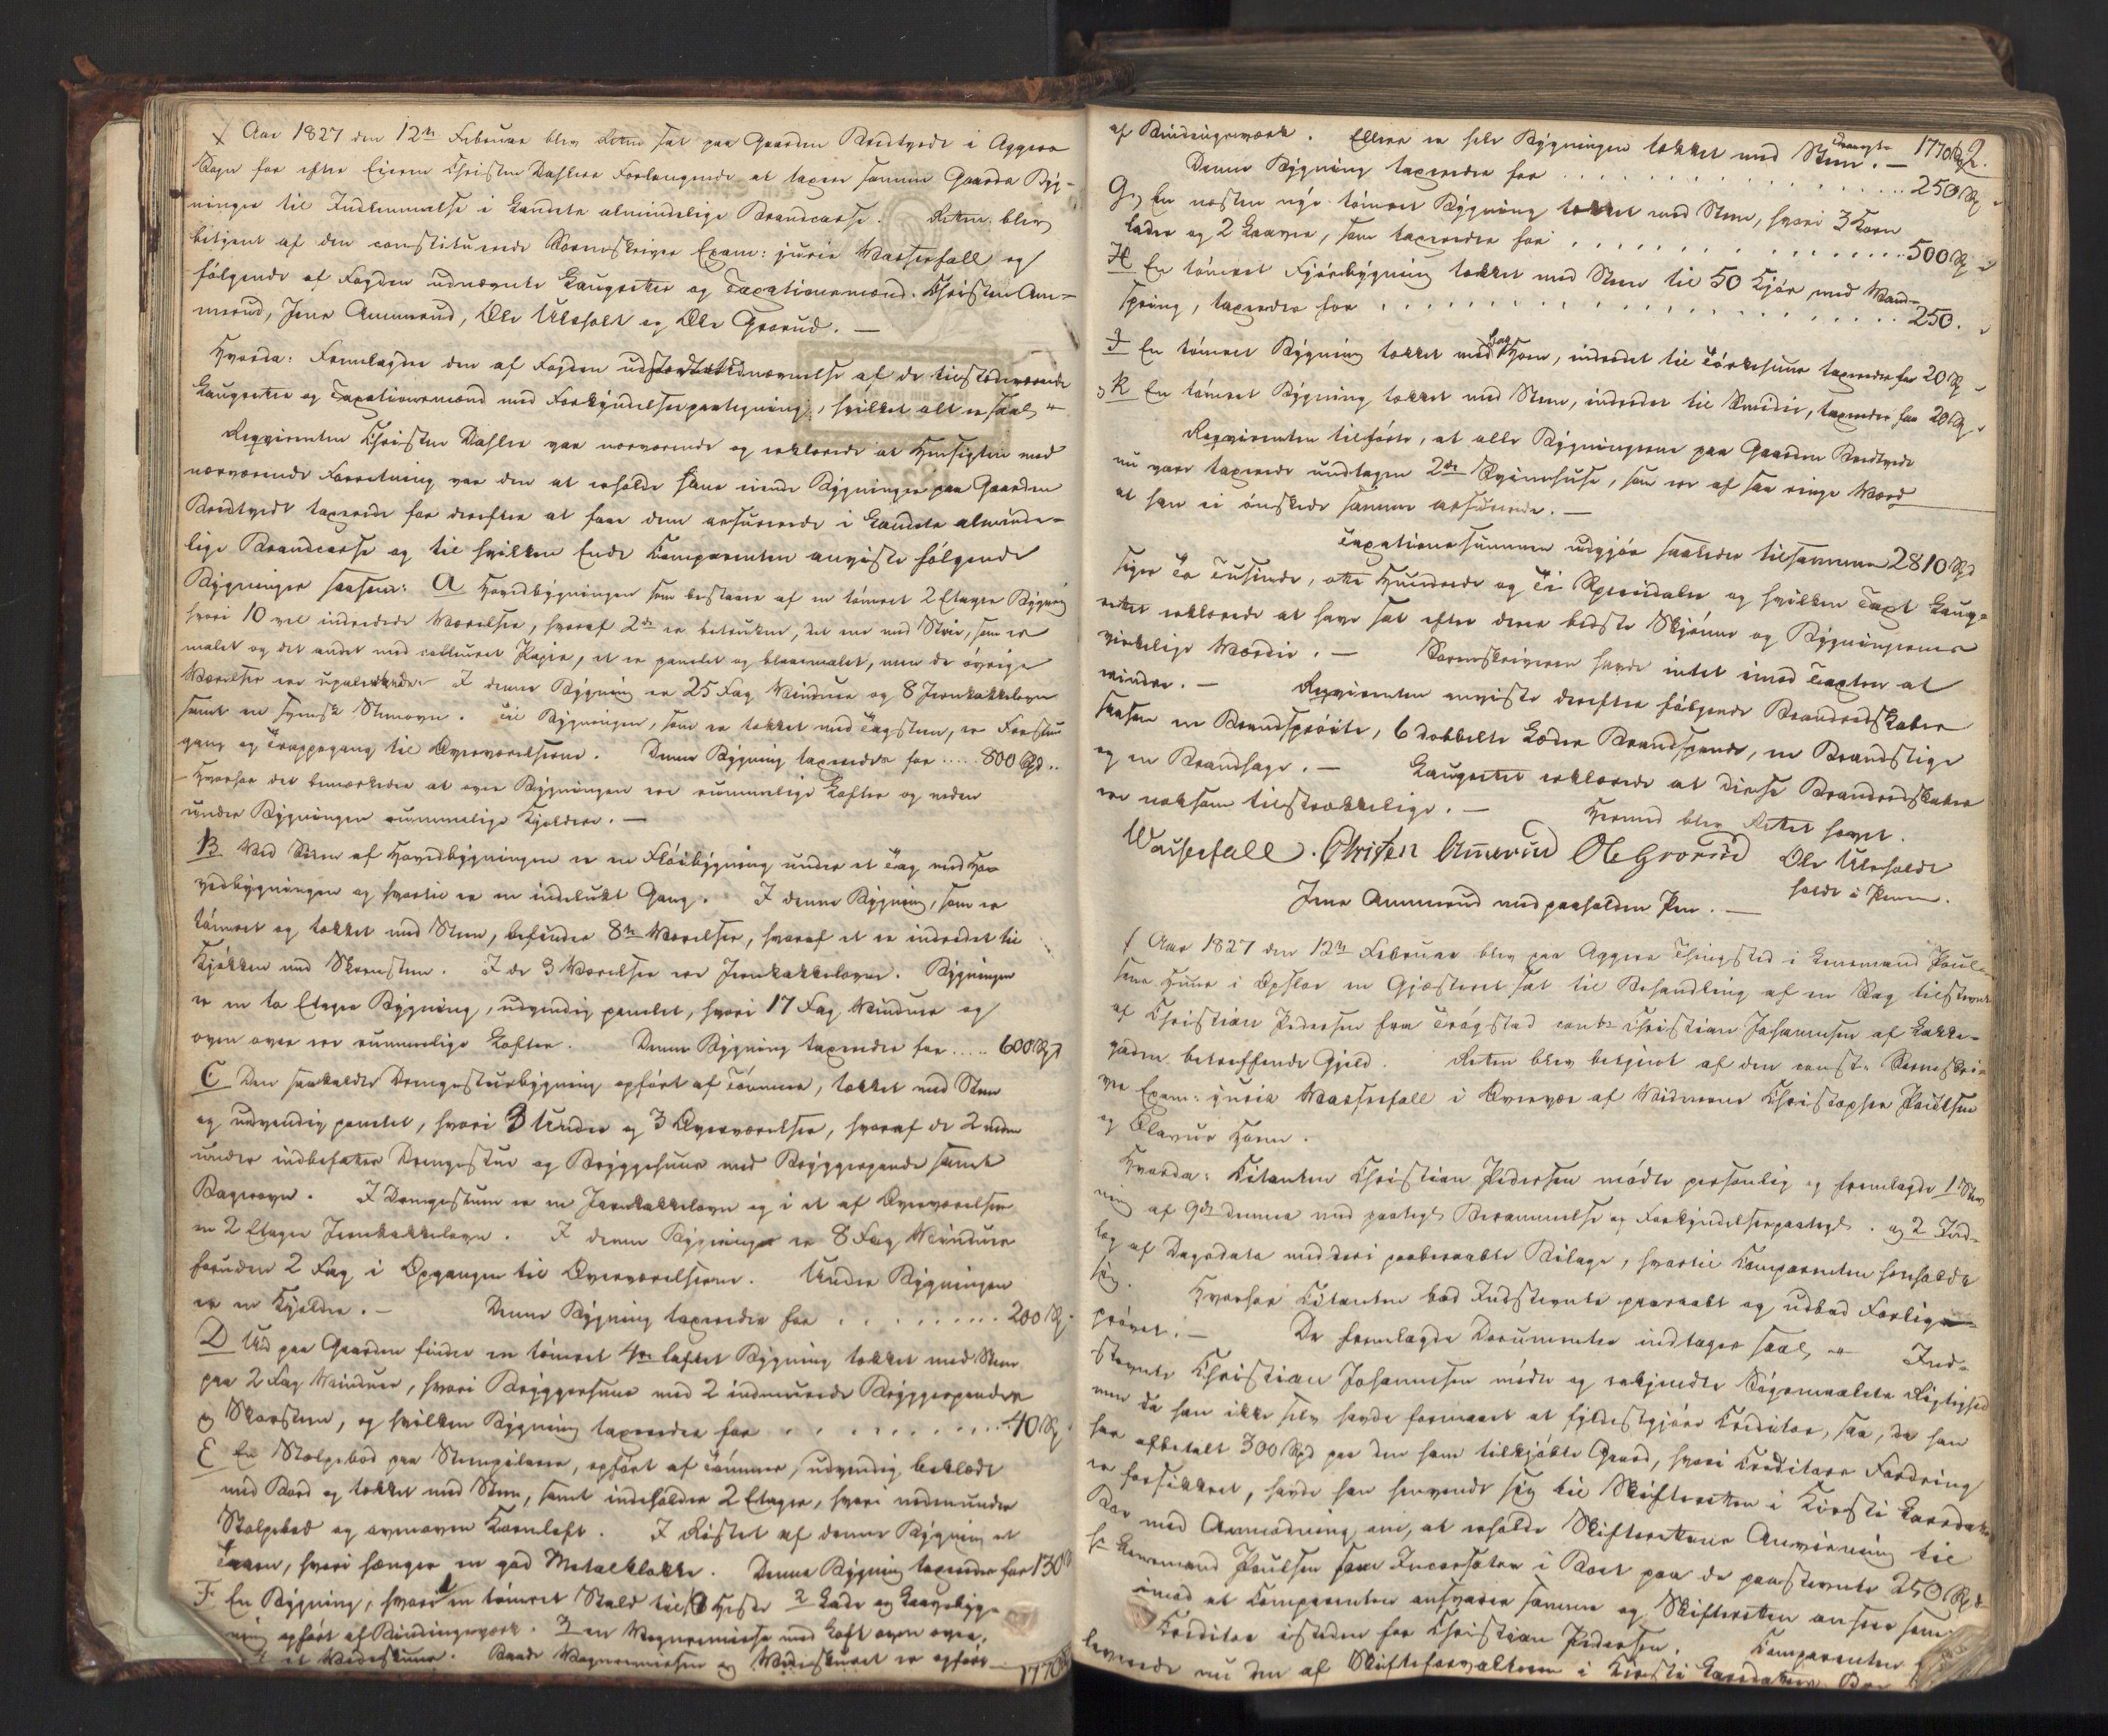 Aar 1827 den 12te Februar blev Retten sat paa Gaarden Bredtvedt i Aggers
Sogn for efter Eieren Christen Dahlers Forlangende at taxere samme Gaards Byg-
ninger til Indlemmelse i Landets almindelige Brandcasse. Retten blev
betjent af den constituerede Sorenskriver Exam: juris Wasserfall og
følgende af Fogden udnævnte Laugretter og Taxationsmænd. Christen Am-
merud, Jens Ammerud, Ole Ulsholt og Ole Grorud. —
Hvorda: Fremlagdes den af Fogden udnævnelse af de tilstedeværende
Laugretter og Taxationsmænd med Forkyndelsespaategning, hvilket alt er saal.
Reqvirenten Christen Dahler var nærværende og erklærede at Hensigten med
nærværende Forretning var den at erholde hans eiende Bygninger paa Gaarden
Bredtvedt taxerede for derefter at faae dem assurerede i Landets alminde-
lige Brandcasse og til hvilken Ende Comparenten anviste følgende
Bygninger saasom: A Hovedbygningen som bestaaer af en tømret 2 Etages Bygning
hvori 10 vel indredede Værelser, hvoraf 2de er betrukne, det ene med Strie, som er
malet og det andet med couleuret Papir, et er panelet og blaaemalet, men de øvrige
Værelser ere upaneelede. I denne Bygning er 25 Fag Vinduer og 8 Jernkakkelovne
samt en svensk Steenovn. Til Bygningen, som er tækket med Tagsteen, er Forstue
gang og Trappegang til Overværelserne. Denne Bygning taxeredes for ..... 800 Spd.
— Hvorhos det bemærkedes at over Bygningen ere rummelige Lofter og neden
under Bygningen rummelige Kjeldere. —
B Ved Siden af Hovedbygningen er en Fløibygning under et Tag med Ho-
vedbygningen og hvortil er en indelukt Gang. I denne Bygning, som er
tømret og tækket med Steen, befindes 8te Værelser, hvoraf et er indredet til
Kjøkken med Skorsteen. I de 3 Værelser ere Jernkakkelovne. Bygningen
er en to Etages Bygning, udvendig panelet, hvori 17 Fag Vinduer og
oven over ere rummelige Lofter. Denne Bygning taxeredes for ..... 600 Spd
C Den saakaldte Drengestuebygning opført af Tømmer, tækket med Steen
og udvendig panelet, hvori 3 Under og 3 Overværelser, hvoraf de 2 neden
under indbefatter Drengestue og Bryggehuus med Bryggerpande samt
Bagerovn. I Drengestuen er en Jernkakkelovn og i et af Overværelserne
en 2 Etages Jernkakkelovn. I denne Bygning er 8 Fag Vinduer
foruden 2 Fag i Opgangen til Overværelserne. Under Bygningen
er en Kjelder. — Denne Bygning taxeredes for ......... 200 Sp.
D Ud paa Gaarden findes en tømret laftet Bygning tækket med Steen
paa 2 Fag Vinduer, hvori Bryggerhuus med 2 indmurede Bryggerpander
og Skorsteen, og hvilken Bygning taxeredes for .......... 40 Sp.
E En Stolpebod paa Steenpilarer, opført af Tømmer, udvendig beklædt
med Bord og tækket med Steen, samt indeholder 2 Etager, hvori nedenunder
Stolpebod og ovenover Kornloft. I Røstet af denne Bygning et
Taarn, hvori hænger en god Metalklokke. Denne Bygning taxeredes for 130
F En Bygning, hvori en tømret Stald til Heste 2 Lade og Laavebyg-
ning opført af Bindingsværk. 3 en Vognremisse med Loft oven over,
et Vedeskuur. Baade Vognremissen og Vedeskuret er opført 1770
af Bindingsværk. Ellers er hele Bygningen tækket med Steen. — Transp: 1770 Sp 2.
Denne Bygning taxeredes for ............ 250 Sp
G, En næsten nye tømret Bygning tækket med Steen, hvori 3 Korn
lader og 2 Laaver, som taxeredes for ............ 500 Sp
H En tømret Fjøsbygning tækket med Steen til 50 Kjør med Vand-
spring, taxeredes for ............ 250.
I En tømret Bygning tækket med Horn, indredet til Tørkehuus taxeredes for 20 Sp
K En tømret Bygning tækket med Steen, indredet til Smidie, taxeredes for 20 Sp
Reqvirenten tilførte, at alle Bygningerne paa Gaarden Bredtvedt
nu vare taxerede undtagen 2de Sviinehuse, som er af saa ringe Værd
at han ei ønskede samme assurerede. —
Taxationssummen udgjør saaledes tilsammen 2810 Spd
siger To Tusinde, otte Hundrede og Ti Speciedaler og hvilken Taxt Laug-
rettet erklærede at have sat efter deres bedste Skjønne og Bygningernes
virkelige Værdie. — Sorenskriveren havde intet imod Taxten at
erindre. — Reqvirenten anviste derefter følgende Brandredskaber
saasom en Brandsprøite, 6 dobbelte Læder Brandspande, en Brandstige
og en Brandhage. — Laugrettet erklærede at disse Brandredskaber
ere noksom tilstrækkelige. — Hermed blev Rettet hævet.
Wasserfall. Christen Amerud Ole Grorud Ole Ulsholdt
holdt i Pennen.
Jens Ammerud med paaholden Pen. —
Aar 1827 den 12te Februar blev paa Aggers Thingsted i Lensmand Poul-
sens Huus i Opslo en Gjæsteret sat til Behandling af en Sag tilstevnt
af Christian Pedersen fra Trøgstad contra Christian Johannesen af Lakke-
gaden betreffende Gjeld. Retten blev betjent af den const. Sorenskri-
ver Exam: juris Wasserfall i Overvær af Vidnerne Christopher Poulsen
og Elavus Horn.
Hvorda: Citanten Christian Pedersen mødte personlig og fremlagde 1 Stev
ning af 9de dennes med paategt Berammelse og Forkyndelsespaategt. og 2 Ind-
læg af Dagsdato med deri paaberaabte Bilage, hvortil Comparenten henholdt
sig. Hvorhos Citanten bad Indstevnte paaraabt og udbad Forlig
prøvet. — De fremlagde Documenter indtages saal. Ind-
stevnte Christian Johannesen mødte og erkjendte Søgemaalets Rigtighed
men da han ikke selv havde formaaet at fyldestgjøre Creditor, saa, da han
har afbetalt 300 Spd paa den ham tilkjøbte Gaard, hvori Creditors Fordring
er forsikkret, havde han henvendt sig til Skifteretten i Kirsti Larsdatters
Boe med Anmodning om, at erholde Skifterettens Anviisning til
Hr. Lensmand Poulsen som Incassator i Boet paa de paastevnte 250 Spd
imod at Comparenten ansvarer samme og Skifteretten ansees som
Creditor isteden for Christian Pedersen. Comparenten
leverede nu den af Skifteforvalteren i Kirsti Larsdatters Boe